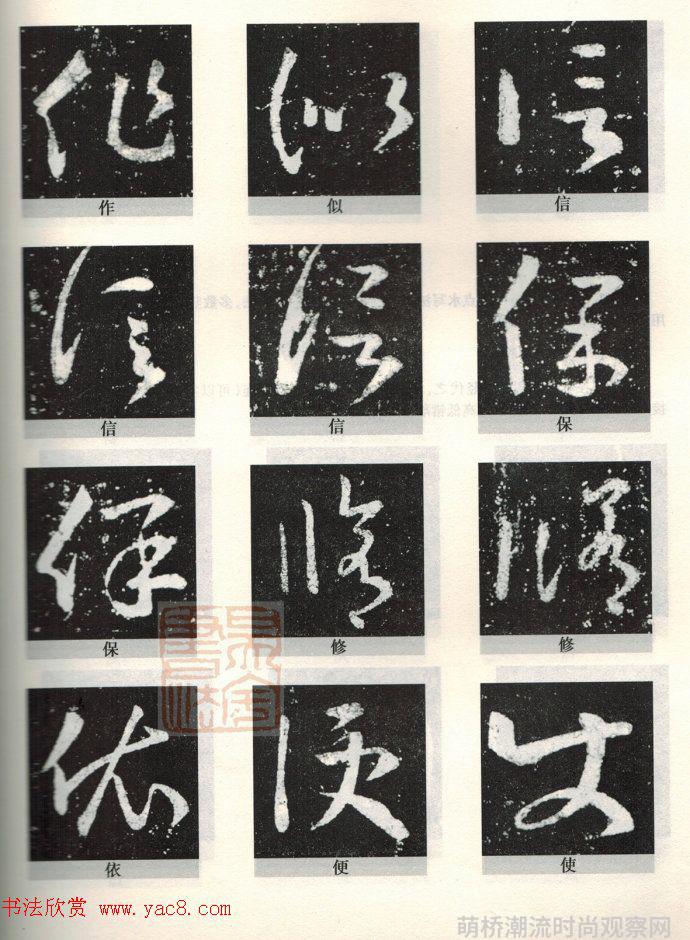 作 似 信
信 信 保
保 修 修
依 便 使
书法欣赏 www.yac8.com
萌桥潮流时尚观察网